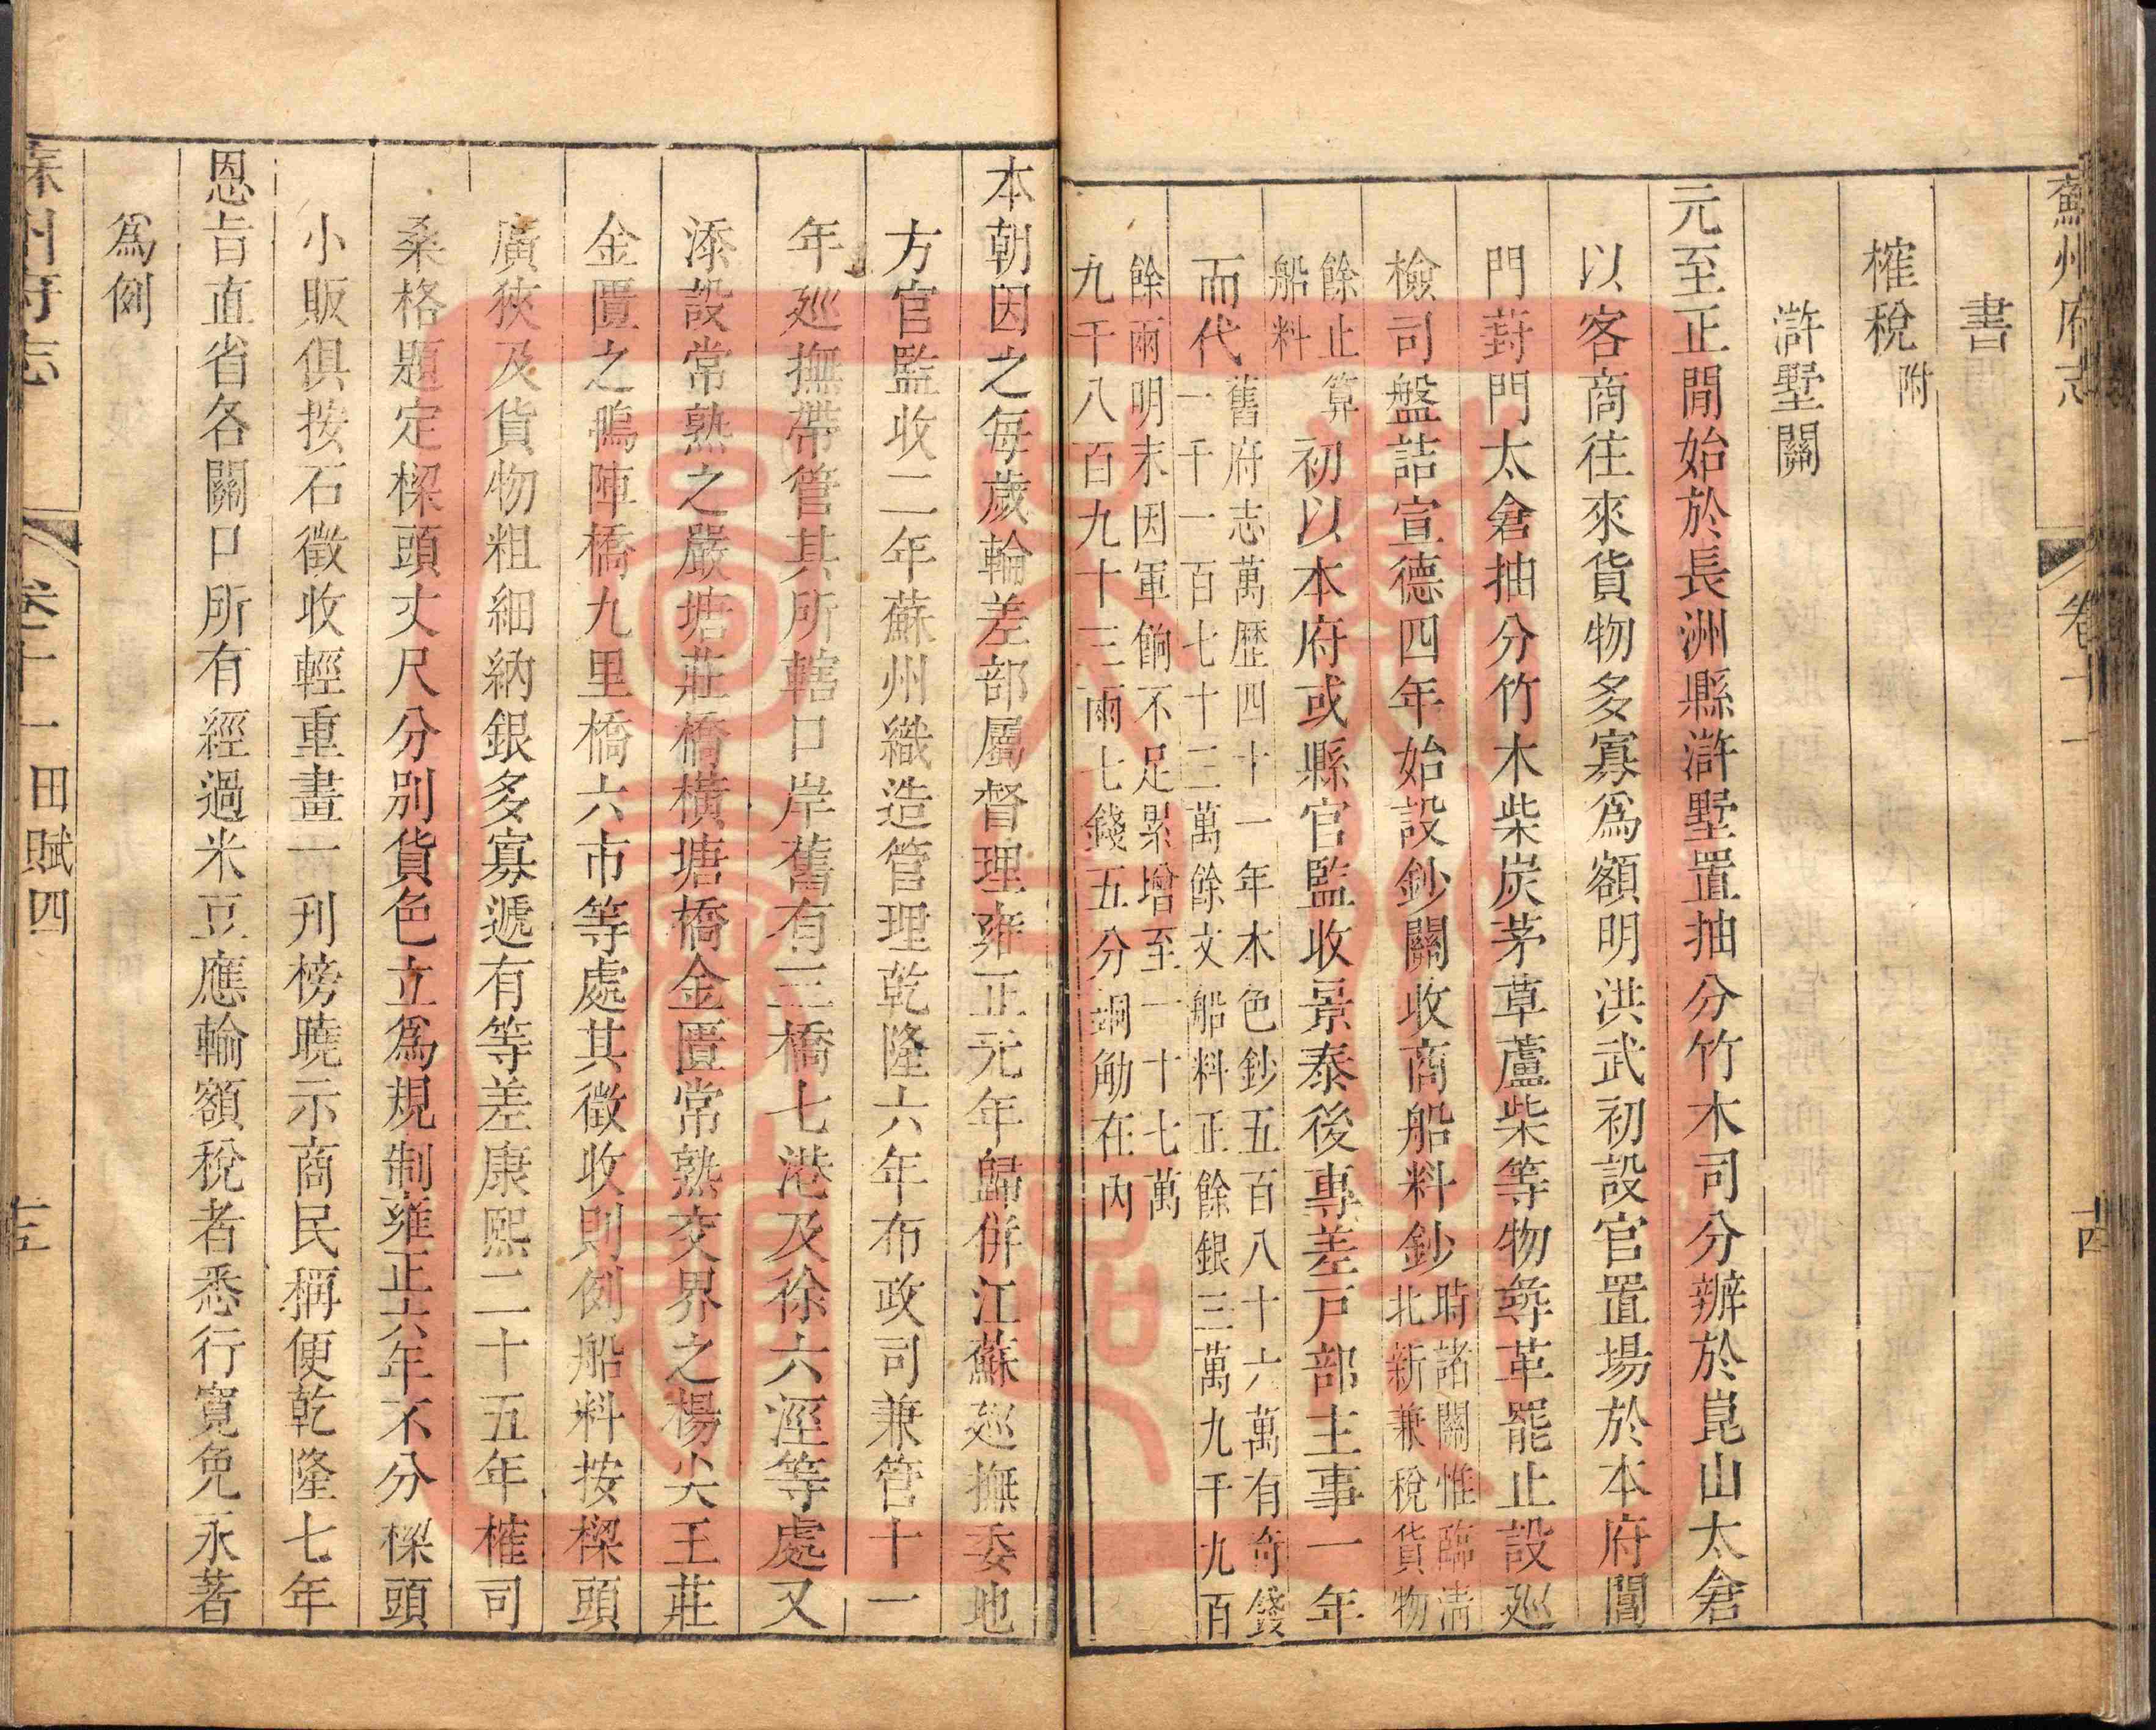 蘇州府志 卷十一 十四
書
榷稅附
滸墅關
元至正閒始於長洲縣滸墅置抽分竹木司分辦於崑山太倉
以客商往來貨物多寡爲額明洪武初設官置場於本府閶
門葑門太倉抽分竹木柴炭茅草蘆柴等物尋革罷止設巡
檢司盤詰宣德四年始設鈔關收商船料鈔時諸關惟臨清
北新兼稅貨物
餘止算
船料
初以本府或縣官監收景泰後專差戸部主事一年
而代舊府志萬歷四十一年木色鈔五百八十六萬有奇錢
一千一百七十三萬餘文船料正餘銀三萬九千九百
餘兩明末因軍餉不足累增至一十七萬
九千八百九十三兩七錢五分銅觔在內
本朝因之每歲輪差部屬督理雍正元年歸併江蘇巡撫委地
方官監收二年蘇州織造管理乾隆六年布政司兼管十一
年巡撫帶管其所轄口岸舊有三橋七港及徐六涇等處又
添設常熟之嚴塘莊橋橫塘橋金匱常熟交界之楊尖王莊
金匱之鴨陣橋九里橋六市等處其徵收則例船料按樑頭
廣狹及貨物粗細納銀多寡遞有等差康熙二十五年榷司
桑格題定樑頭丈尺分別貨色立爲規制雍正六年不分樑頭
小販俱按石徵收輕重畫一刋榜曉示商民稱便乾隆七年
恩旨直省各關口所有經過米豆應輸額稅者悉行寬免永著
爲例
蘇州府志 卷十一 田賦四 十五